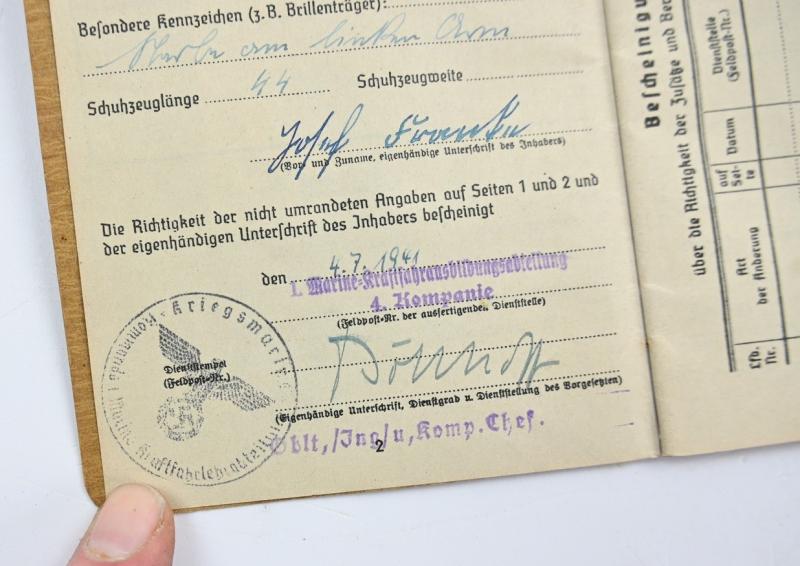 Besondere Kennzeichen (z.B. Brillenträger):
Narbe am linken Arm
Schuhzeuglänge 44 Schuhzeugweite
Josef Franke
(Vor- und Zuname, eigenhändige Unterschrift des Inhabers)
Die Richtigkeit der nicht umrandeten Angaben auf Seiten 1 und 2 und
der eigenhändigen Unterschrift des Inhabers bescheinigt
den 4.7.1941
1. Marine-Kraftfahrausbildungsabteilung
4. Kompanie
(Feldpost-Nr. der ausfertigenden Dienststelle)
Kriegsmarine
Kommando
Marine Kraftfahrlehrabteilung
Dienststempel
(Feldpost-Nr.)
(Eigenhändige Unterschrift, Dienstgrad u. Dienststellung des Vorgesetzten)
Oblt./Ing/u. Komp. Chef.
2
Bescheinigu
über die Richtigkeit der Zusätze und Ber
Lfd. Nr.
Art der Änderung
auf Seite
Datum
Dienststelle (Feldpost-Nr.)